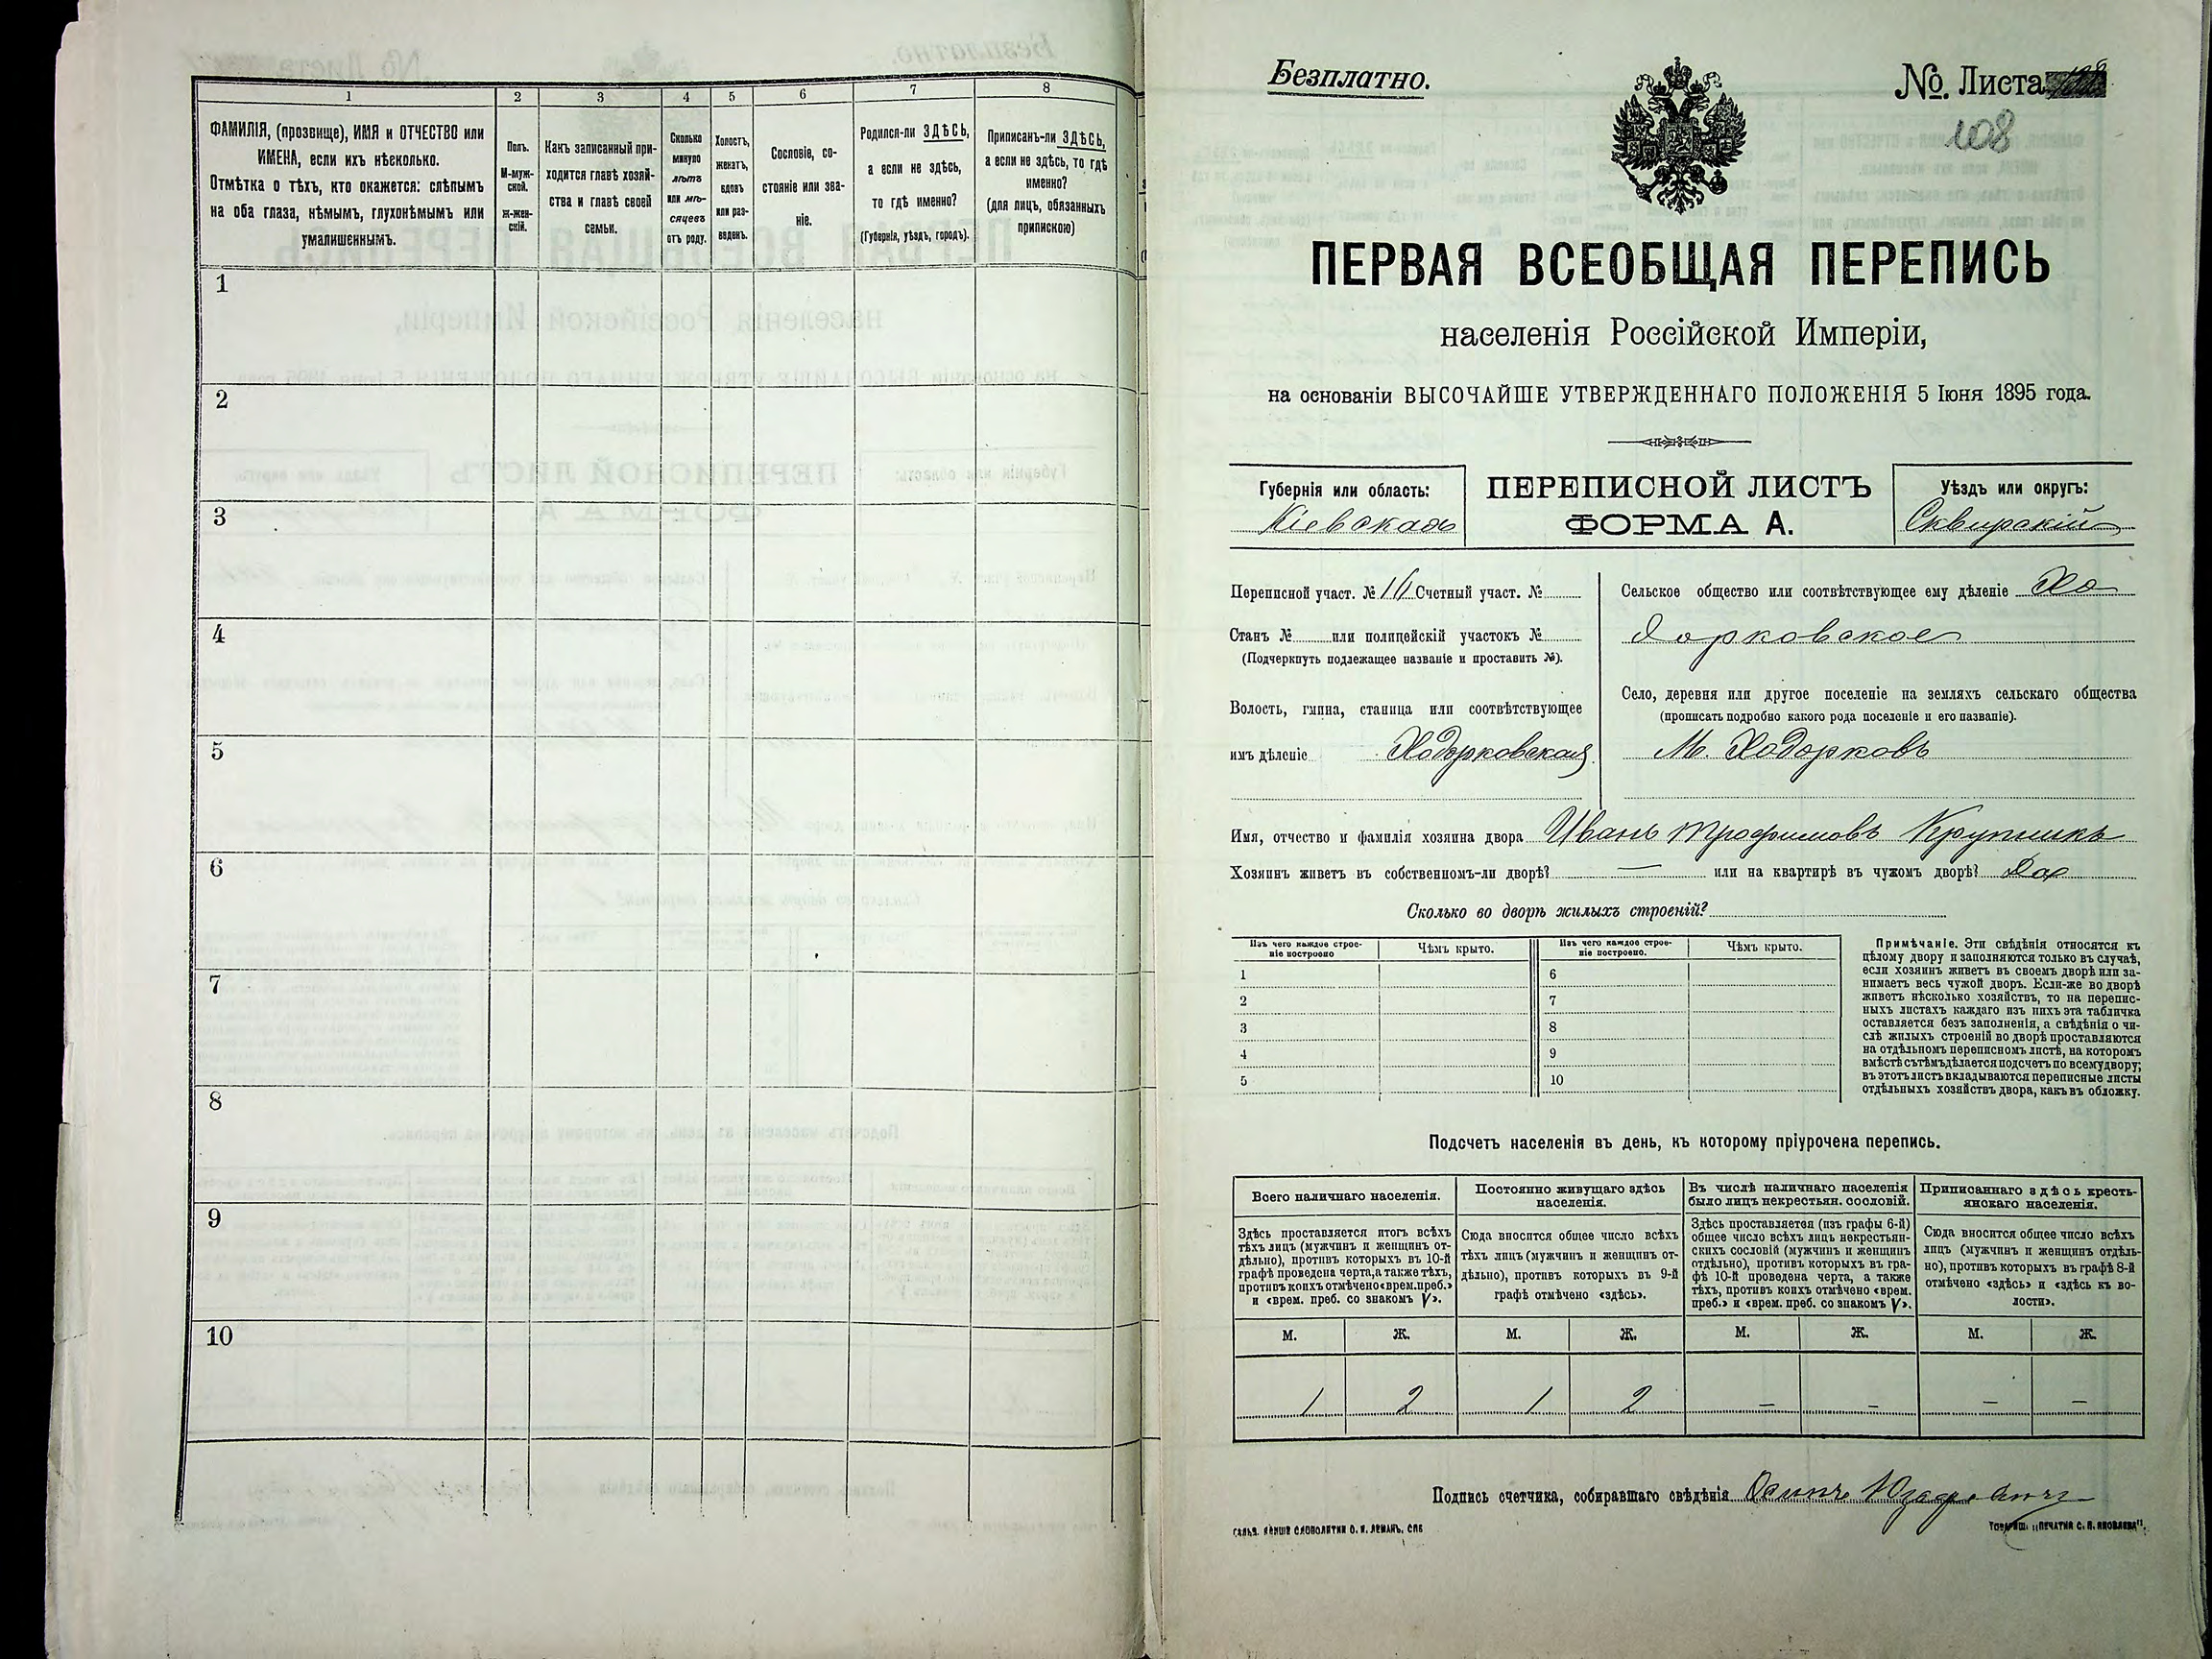 1 2 3 4 5 6 7 8
ФАМИЛІЯ, (прозвище), ИМЯ и ОТЧЕСТВО или
ИМЕНА, если ихъ нѣсколько.
Отмѣтка о тѣхъ, кто окажется: слѣпымъ
на оба глаза, нѣмымъ, глухонѣмымъ или
умалишеннымъ.
Полъ.
М-муж-
ской.
ж-жен-
скій.
Какъ записанный при-
ходится главѣ хозяй-
ства и главѣ своей
семьи.
Сколько
минуло
лѣтъ
или мѣ-
сяцевъ
отъ роду.
Холостъ,
женатъ,
вдовъ
или раз-
веденъ.
Сословіе, со-
стояніе или зва-
ніе.
Родился-ли ЗДѢСЬ,
а если не здѣсь,
то гдѣ именно?
(Губернія, уѣздъ, городъ).
Приписанъ-ли ЗДѢСЬ,
а если не здѣсь, то гдѣ
именно?
(для лицъ, обязанныхъ
припискою)
1
2
3
4
5
6
7
8
9
10
Безплатно.
№. Листа
108
ПЕРВАЯ ВСЕОБЩАЯ ПЕРЕПИСЬ
населенія Россійской Имперіи,
на основаніи ВЫСОЧАЙШЕ УТВЕРЖДЕННАГО ПОЛОЖЕНІЯ 5 Іюня 1895 года.
Губернія или область:
Кіевская
ПЕРЕПИСНОЙ ЛИСТЪ
ФОРМА А.
Уѣздъ или округъ:
Сквирскій
Переписной участ. № Счетный участ. №
Станъ № или полицейскій участокъ №
(Подчеркнуть подлежащее названіе и проставить №).
Волость, гмина, станица или соотвѣтствующее
имъ дѣленіе Ходорковская
Сельское общество или соотвѣтствующее ему дѣленіе Хо
дорковское
Село, деревня или другое поселеніе на земляхъ сельскаго общества
(прописать подробно какого рода поселеніе и его названіе).
М. Ходорковъ
Имя, отчество и фамилія хозяина двора Иванъ Трофимовъ Крупникъ
Хозяинъ живетъ въ собственномъ-ли дворѣ? — или на квартирѣ въ чужомъ дворѣ? Да
Сколько во дворѣ жилыхъ строеній?
Изъ чего каждое строе-
ніе построено
Чѣмъ крыто.
Изъ чего каждое строе-
ніе построено.
Чѣмъ крыто.
1 6
2 7
3 8
4 9
5 10
Примѣчаніе. Эти свѣдѣнія относятся къ
цѣлому двору и заполняются только въ случаѣ,
если хозяинъ живетъ въ своемъ дворѣ или за-
нимаетъ весь чужой дворъ. Если-же во дворѣ
живетъ нѣсколько хозяйствъ, то на перепис-
ныхъ листахъ каждаго изъ нихъ эта табличка
оставляется безъ заполненія, а свѣдѣнія о чи-
слѣ жилыхъ строеній во дворѣ проставляются
на отдѣльномъ переписномъ листѣ, на которомъ
вмѣстѣ съ тѣмъ дѣлается подсчетъ по всему двору;
въ этотъ листъ вкладываются переписные листы
отдѣльныхъ хозяйствъ двора, какъ въ обложку.
Подсчетъ населенія въ день, къ которому пріурочена перепись.
Всего наличнаго населенія.
Здѣсь проставляется итогъ всѣхъ
тѣхъ лицъ (мужчинъ и женщинъ от-
дѣльно), противъ которыхъ въ 10-й
графѣ проведена черта, а также тѣхъ,
противъ коихъ отмѣчено «врем. преб.»
и «врем. преб. со знакомъ V».
Постоянно живущаго здѣсь
населенія.
Сюда вносится общее число всѣхъ
тѣхъ лицъ (мужчинъ и женщинъ от-
дѣльно), противъ которыхъ въ 9-й
графѣ отмѣчено «здѣсь».
Въ числѣ наличнаго населенія
было лицъ некрестьян. сословій.
Здѣсь проставляется (изъ графы 6-й)
общее число всѣхъ лицъ некрестьян-
скихъ сословій (мужчинъ и женщинъ
отдѣльно), противъ которыхъ въ гра-
фѣ 10-й проведена черта, а также
тѣхъ, противъ коихъ отмѣчено «врем.
преб.» и «врем. преб. со знакомъ V».
Приписаннаго здѣсь кресть-
янскаго населенія.
Сюда вносится общее число всѣхъ
лицъ (мужчинъ и женщинъ отдѣль-
но), противъ которыхъ въ графѣ 8-й
отмѣчено «здѣсь» и «здѣсь къ во-
лости».
М. Ж. М. Ж. М. Ж. М. Ж.
1 2 1 2 — — — —
Подпись счетчика, собиравшаго свѣдѣнія Осипъ